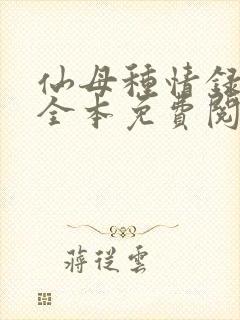 仙母種情錄
全本免費閱
蔣從雲